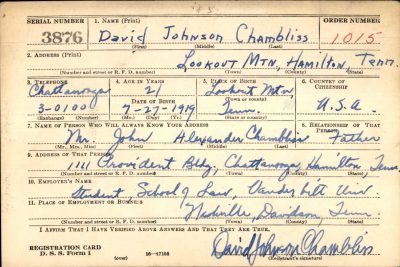 SERIAL NUMBER 1. NAME (Print) ORDER NUMBER
3876 David Johnson Chambliss 1015
(First) (Middle) (Last)
2. ADDRESS (Print)
Lookout Mtn, Hamilton, Tenn.
(Number and street or R. F. D. number) (Town) (County) (State)
3. TELEPHONE 4. AGE IN YEARS 5. PLACE OF BIRTH 6. COUNTRY OF CITIZENSHIP
Chattanooga 21 Lookout Mtn
DATE OF BIRTH (Town or county)
3-0100 7-27-1919 Tenn. U.S.A.
(Exchange) (Number) (Mo.) (Day) (Yr.) (State or country)
7. NAME OF PERSON WHO WILL ALWAYS KNOW YOUR ADDRESS 8. RELATIONSHIP OF THAT PERSON
Mr. John Alexander Chambliss Father
(Mr., Mrs., Miss) (First) (Middle) (Last)
9. ADDRESS OF THAT PERSON
1111 Provident Bldg, Chattanooga, Hamilton, Tenn
(Number and street or R. F. D. number) (Town) (County) (State)
10. EMPLOYER'S NAME
Student, School of Law, Vanderbilt Univ.
11. PLACE OF EMPLOYMENT OR BUSINESS
Nashville, Davidson, Tenn
(Number and street or R. F. D. number) (Town) (County) (State)
I AFFIRM THAT I HAVE VERIFIED ABOVE ANSWERS AND THAT THEY ARE TRUE.
REGISTRATION CARD David Johnson Chambliss
D. S. S. Form 1 (over) 16-17105 (Registrant's signature)